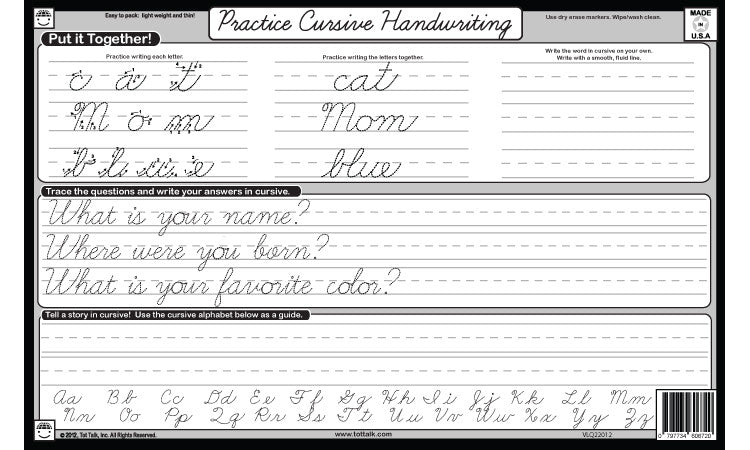 Easy to pack: light weight and thin!
Practice Cursive Handwriting
Use dry erase markers. Wipe/wash clean.
MADE
IN
U.S.A
Put it Together!
Practice writing each letter.
Practice writing the letters together.
Write the word in cursive on your own.
Write with a smooth, fluid line.
c a t cat
M o m Mom
b l u e blue
Trace the questions and write your answers in cursive.
What is your name?
Where were you born?
What is your favorite color?
Tell a story in cursive! Use the cursive alphabet below as a guide.
Aa Bb Cc Dd Ee Ff Gg Hh Ii Jj Kk Ll Mm
Nn Oo Pp Qq Rr Ss Tt Uu Vv Ww Xx Yy Zz
©2012, Tot Talk, Inc. All Rights Reserved.
www.tottalk.com
VLQ22012
0 797734 606720